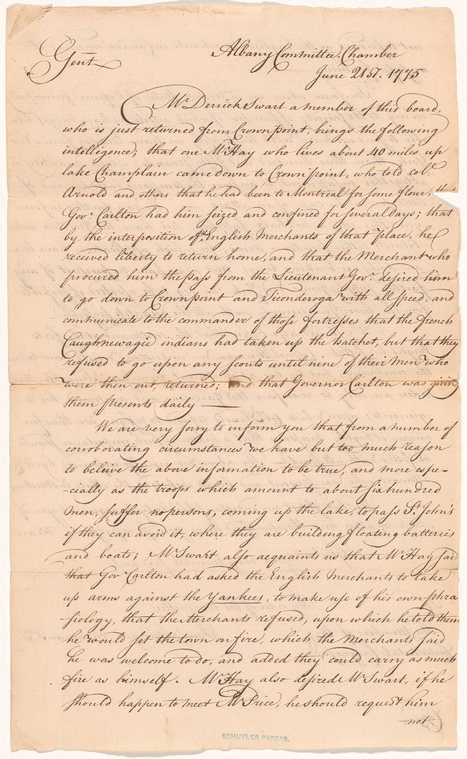 Gent.
Albany Committee Chamber
June 21st. 1775
Mr. Derrick Swart a member of this board,
who is just returned from Crown point, brings the following
intelligence; that one Mr. Hay who lives about 40 miles up
lake Champlain came down to Crown point, who told colo.
Arnold and others that he had been to Montreal for some flour,
Govr. Carlton had him seized and confined for several days; that
by the interposition of ye. English Merchants of that place, he
received liberty to return home, and that the Merchant who
procured him the pass from the Lieutenant Govr. desired him
to go down to Crown point and Ticonderoga with all speed, and
communicate to the commander of those fortresses that the french
Caughnewagie indians had taken up the hatchet, but that they
refused to go upon any scouts until nine of their men who
were then out, returned; and that Governor Carlton was giving
them presents daily —
We are very sorry to inform you that from a number of
corroborating circumstances we have but too much reason
to believe the above information to be true, and more espe-
-cially as the troops which amount to about six hundred
men, suffer no persons, coming up the lake, to pass St. John's
if they can avoid it, where they are building floating batteries
and boats; Mr. Swart also acquaints us that Mr. Hay said
that Govr. Carlton had asked the English Merchants to take
up arms against the Yankees, to make use of his own phra
siology, that the Merchants refused, upon which he told them
he would set the town on fire, which the Merchants said
he was welcome to do, and added they could carry as much
fire as himself. Mr. Hay also desired Mr. Swart, if he
should happen to meet Mr. Price, he should request him
not
SCHUYLER PAPERS.